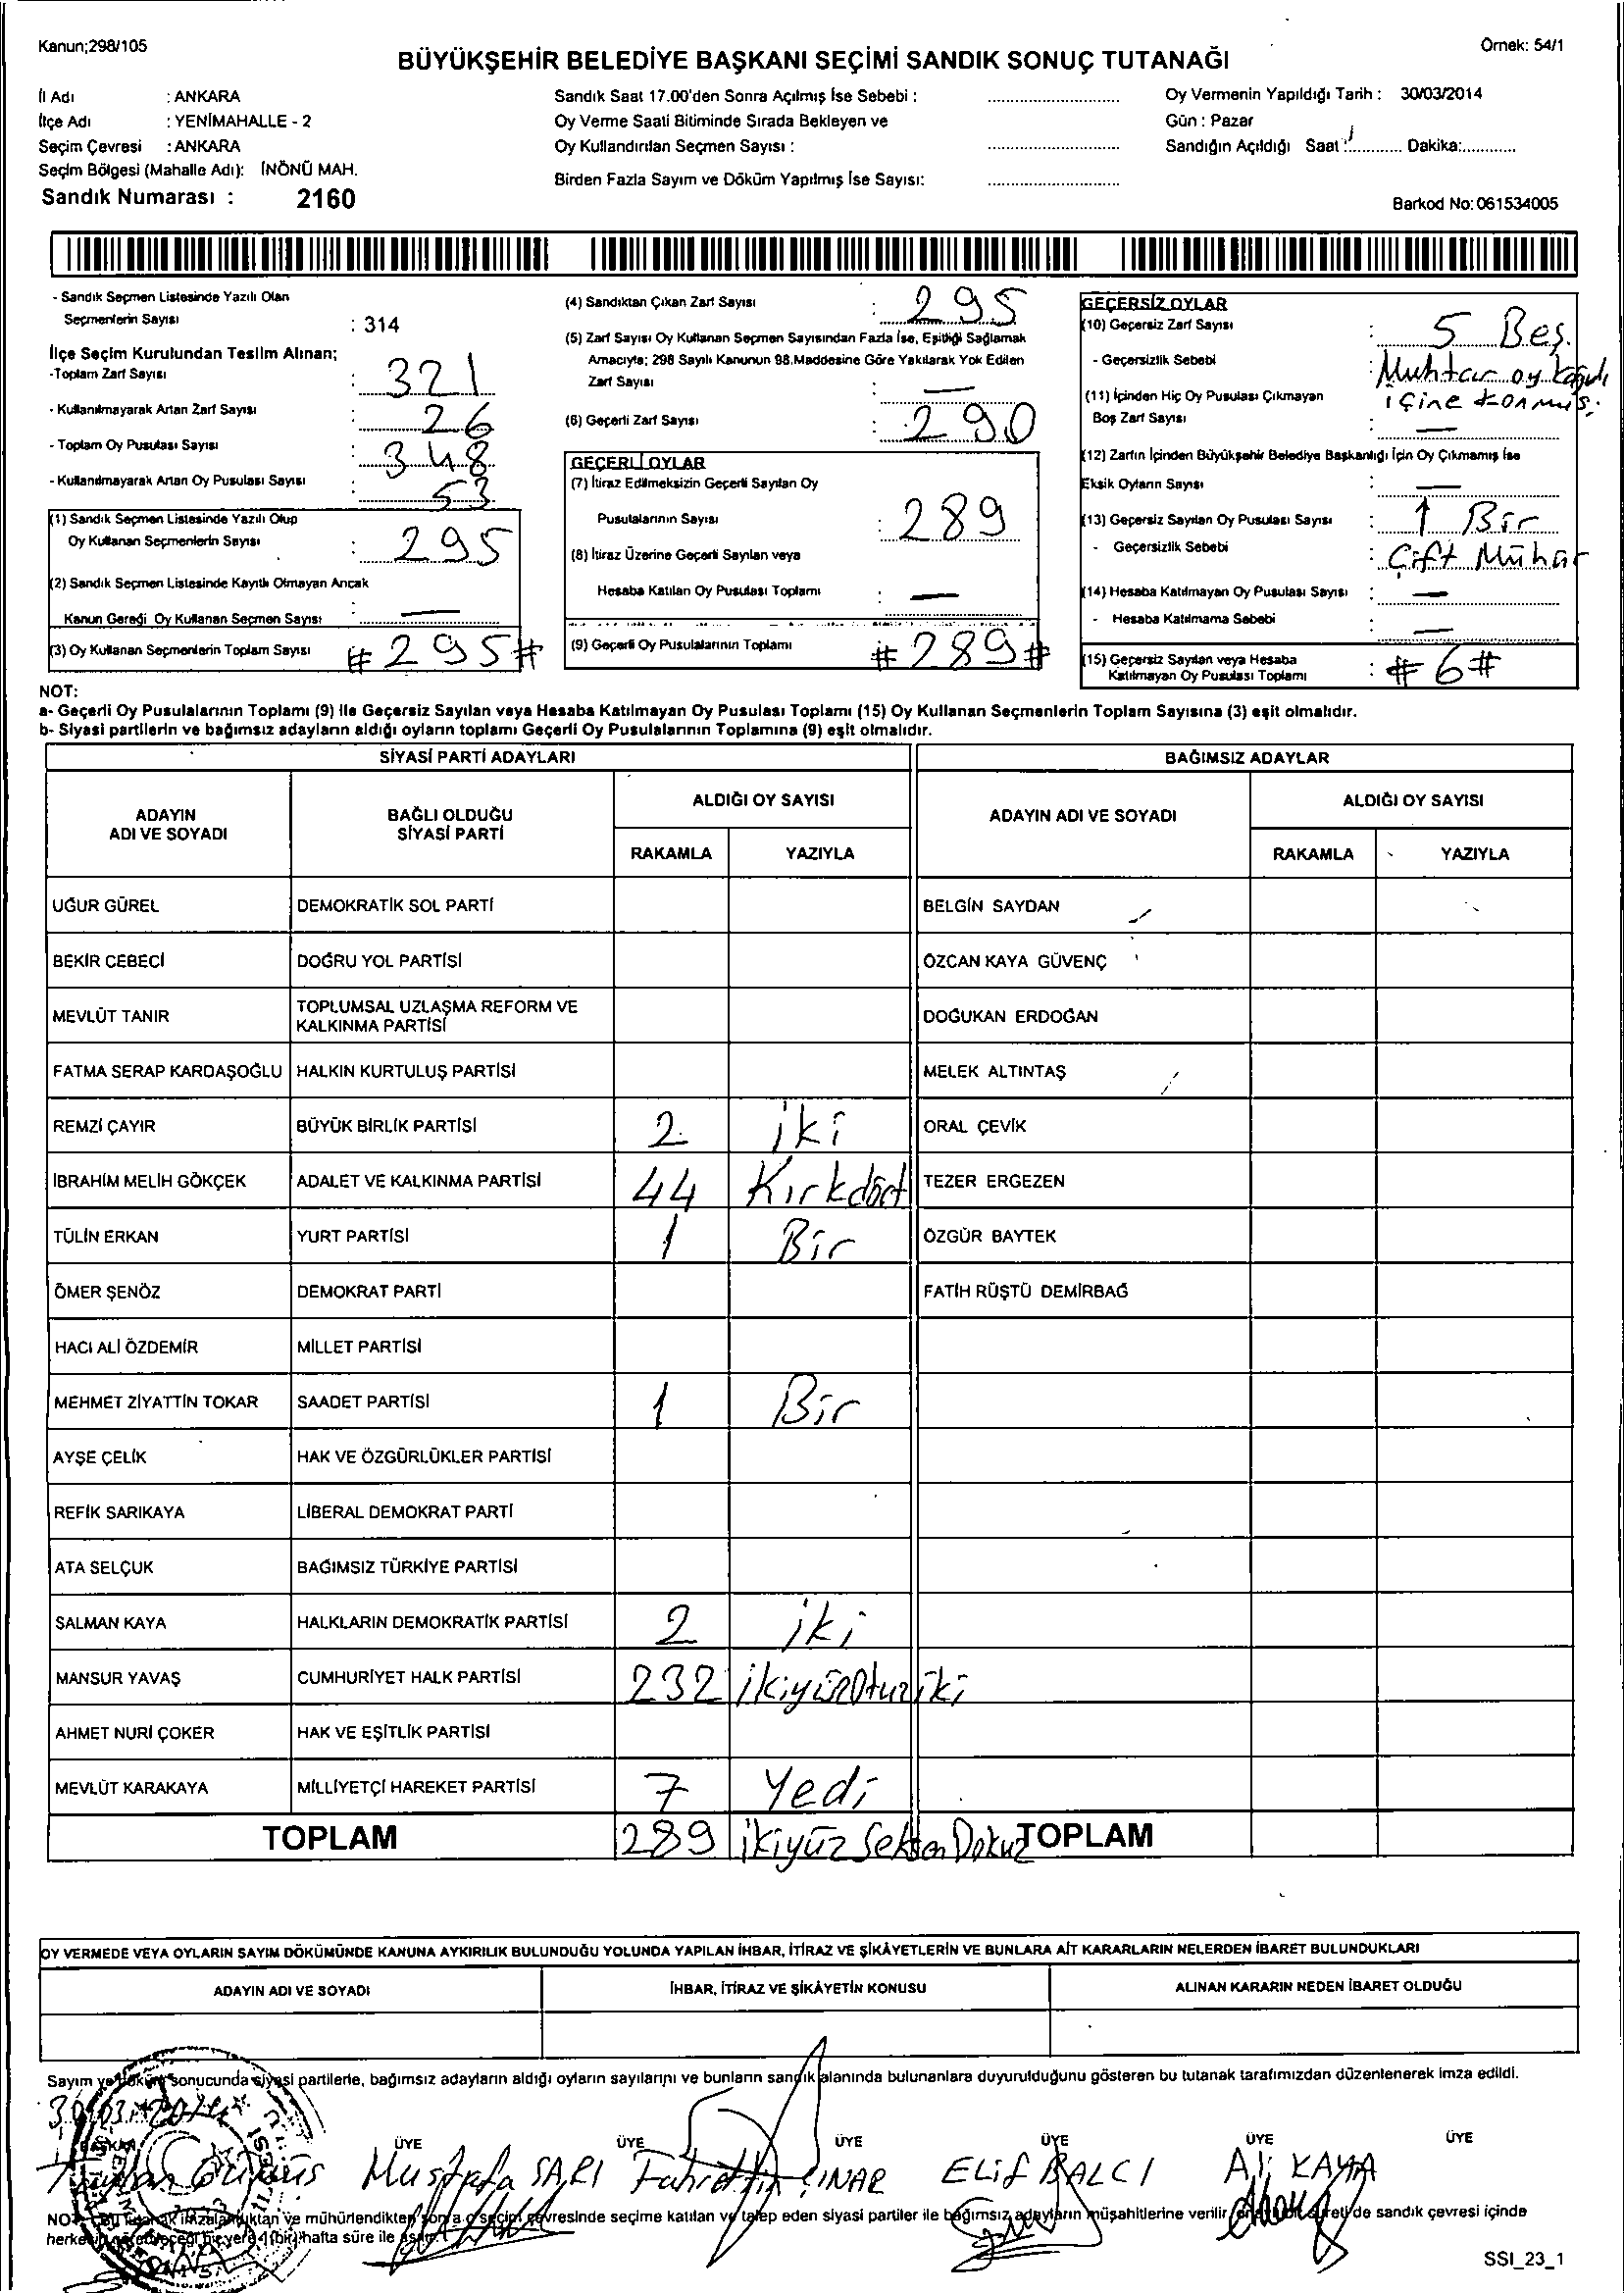 Kanun;298/105
Örnek: 54/1
BÜYÜKŞEHİR BELEDİYE BAŞKANI SEÇİMİ SANDIK SONUÇ TUTANAĞI
İl Adı : ANKARA
İlçe Adı : YENİMAHALLE - 2
Seçim Çevresi : ANKARA
Seçim Bölgesi (Mahalle Adı): İNÖNÜ MAH.
Sandık Numarası : 2160
Sandık Saat 17.00'den Sonra Açılmış İse Sebebi :
Oy Verme Saati Bitiminde Sırada Bekleyen ve
Oy Kullandırılan Seçmen Sayısı :
Birden Fazla Sayım ve Döküm Yapılmış İse Sayısı:
Oy Vermenin Yapıldığı Tarih : 30/03/2014
Gün : Pazar
Sandığın Açıldığı Saat : Dakika:
Barkod No: 061534005
- Sandık Seçmen Listesinde Yazılı Olan
Seçmenlerin Sayısı : 314
İlçe Seçim Kurulundan Teslim Alınan;
-Toplam Zarf Sayısı : 321
- Kullanılmayarak Artan Zarf Sayısı : 26
- Toplam Oy Pusulası Sayısı : 348
- Kullanılmayarak Artan Oy Pusulası Sayısı : 53
(1) Sandık Seçmen Listesinde Yazılı Olup
Oy Kullanan Seçmenlerin Sayısı : 295
(2) Sandık Seçmen Listesinde Kayıtlı Olmayan Ancak
Kanun Gereği Oy Kullanan Seçmen Sayısı : —
(3) Oy Kullanan Seçmenlerin Toplam Sayısı # 295 #
(4) Sandıktan Çıkan Zarf Sayısı : 295
(5) Zarf Sayısı Oy Kullanan Seçmen Sayısından Fazla İse, Eşitliği Sağlamak
Amacıyla; 298 Sayılı Kanunun 98.Maddesine Göre Yakılarak Yok Edilen
Zarf Sayısı : —
(6) Geçerli Zarf Sayısı : 290
GEÇERLİ OYLAR
(7) İtiraz Edilmeksizin Geçerli Sayılan Oy
Pusulalarının Sayısı : 289
(8) İtiraz Üzerine Geçerli Sayılan veya
Hesaba Katılan Oy Pusulası Toplamı : —
(9) Geçerli Oy Pusulalarının Toplamı # 289 #
GEÇERSİZ OYLAR
(10) Geçersiz Zarf Sayısı : 5 Beş.
- Geçersizlik Sebebi : Muhtar oy kağıdı
içine konmuş.
(11) İçinden Hiç Oy Pusulası Çıkmayan
Boş Zarf Sayısı : —
(12) Zarfın İçinden Büyükşehir Belediye Başkanlığı İçin Oy Çıkmamış İse
Eksik Oyların Sayısı : —
(13) Geçersiz Sayılan Oy Pusulası Sayısı : 1 Bir
- Geçersizlik Sebebi : Çift Mühür
(14) Hesaba Katılmayan Oy Pusulası Sayısı : —
- Hesaba Katılmama Sebebi : —
(15) Geçersiz Sayılan veya Hesaba
Katılmayan Oy Pusulası Toplamı : # 6 #
NOT:
a- Geçerli Oy Pusulalarının Toplamı (9) ile Geçersiz Sayılan veya Hesaba Katılmayan Oy Pusulası Toplamı (15) Oy Kullanan Seçmenlerin Toplam Sayısına (3) eşit olmalıdır.
b- Siyasi partilerin ve bağımsız adayların aldığı oyların toplamı Geçerli Oy Pusulalarının Toplamına (9) eşit olmalıdır.
SİYASİ PARTİ ADAYLARI BAĞIMSIZ ADAYLAR
ADAYIN ADI VE SOYADI BAĞLI OLDUĞU SİYASİ PARTİ ALDIĞI OY SAYISI ADAYIN ADI VE SOYADI ALDIĞI OY SAYISI
RAKAMLA YAZIYLA RAKAMLA YAZIYLA
UĞUR GÜREL DEMOKRATİK SOL PARTİ BELGİN SAYDAN
BEKİR CEBECİ DOĞRU YOL PARTİSİ ÖZCAN KAYA GÜVENÇ
MEVLÜT TANIR TOPLUMSAL UZLAŞMA REFORM VE KALKINMA PARTİSİ DOĞUKAN ERDOĞAN
FATMA SERAP KARDAŞOĞLU HALKIN KURTULUŞ PARTİSİ MELEK ALTINTAŞ
REMZİ ÇAYIR BÜYÜK BİRLİK PARTİSİ 2 iki ORAL ÇEVİK
İBRAHİM MELİH GÖKÇEK ADALET VE KALKINMA PARTİSİ 44 Kırkdört TEZER ERGEZEN
TÜLİN ERKAN YURT PARTİSİ 1 Bir ÖZGÜR BAYTEK
ÖMER ŞENÖZ DEMOKRAT PARTİ FATİH RÜŞTÜ DEMİRBAĞ
HACI ALİ ÖZDEMİR MİLLET PARTİSİ
MEHMET ZİYATTİN TOKAR SAADET PARTİSİ 1 Bir
AYŞE ÇELİK HAK VE ÖZGÜRLÜKLER PARTİSİ
REFİK SARIKAYA LİBERAL DEMOKRAT PARTİ
ATA SELÇUK BAĞIMSIZ TÜRKİYE PARTİSİ
SALMAN KAYA HALKLARIN DEMOKRATİK PARTİSİ 2 iki
MANSUR YAVAŞ CUMHURİYET HALK PARTİSİ 232 ikiyüzOtuziki
AHMET NURİ ÇOKER HAK VE EŞİTLİK PARTİSİ
MEVLÜT KARAKAYA MİLLİYETÇİ HAREKET PARTİSİ 7 Yedi
TOPLAM 289 ikiyüz SeksenDokuz TOPLAM
OY VERMEDE VEYA OYLARIN SAYIM DÖKÜMÜNDE KANUNA AYKIRILIK BULUNDUĞU YOLUNDA YAPILAN İHBAR, İTİRAZ VE ŞİKÂYETLERİN VE BUNLARA AİT KARARLARIN NELERDEN İBARET BULUNDUKLARI
ADAYIN ADI VE SOYADI İHBAR, İTİRAZ VE ŞİKÂYETİN KONUSU ALINAN KARARIN NEDEN İBARET OLDUĞU
Sayım ve döküm sonucunda siyasi partilerle, bağımsız adayların aldığı oyların sayılarını ve bunların sandık alanında bulunanlara duyurulduğunu gösteren bu tutanak tarafımızdan düzenlenerek imza edildi.
30/03/2014
BAŞKAN ÜYE ÜYE ÜYE ÜYE ÜYE ÜYE
Mustafa SARI Fahrettin ÇINAR Elif BALCI Ali KAYA
NOT: Bu tutanak imzalandıktan ve mühürlendikten sonra o seçim çevresinde seçime katılan ve talep eden siyasi partiler ile bağımsız adayların müşahitlerine verilir de sandık çevresi içinde
herkesin görebileceği bir yere 1(bir) hafta süre ile asılır.
SSI_23_1